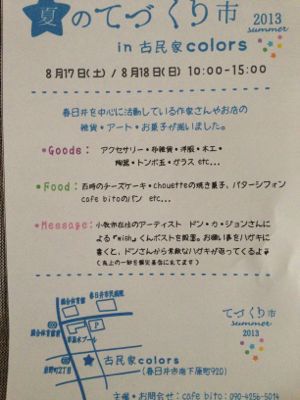 夏のてづくり市 2013 summer
in 古民家colors
8月17日(土) / 8月18日(日) 10:00-15:00
春日井を中心に活動している作家さんやお店の
雑貨・アート・お菓子が揃いました。
*Goods: アクセサリー・布雑貨・洋服・木工・
陶器・トンボ玉・グラス etc...
*Food: 四時のチーズケーキ・chouetteの焼き菓子、バターシフォン
cafe bitoのパン etc...
*Message: 小牧市在住のアーティスト ドン・カ・ジョンさんに
よる『wish』くんポストを設置。お願い事をハガキに
書くと、ドンさんから素敵なハガキが返ってくるよ
春日井市民病院
総合体育館
P
温水プール
古民家colors
(春日井市南下原町920)
てづくり市
summer
2013
主催・お問合せ: cafe bito: 090-4256-5014